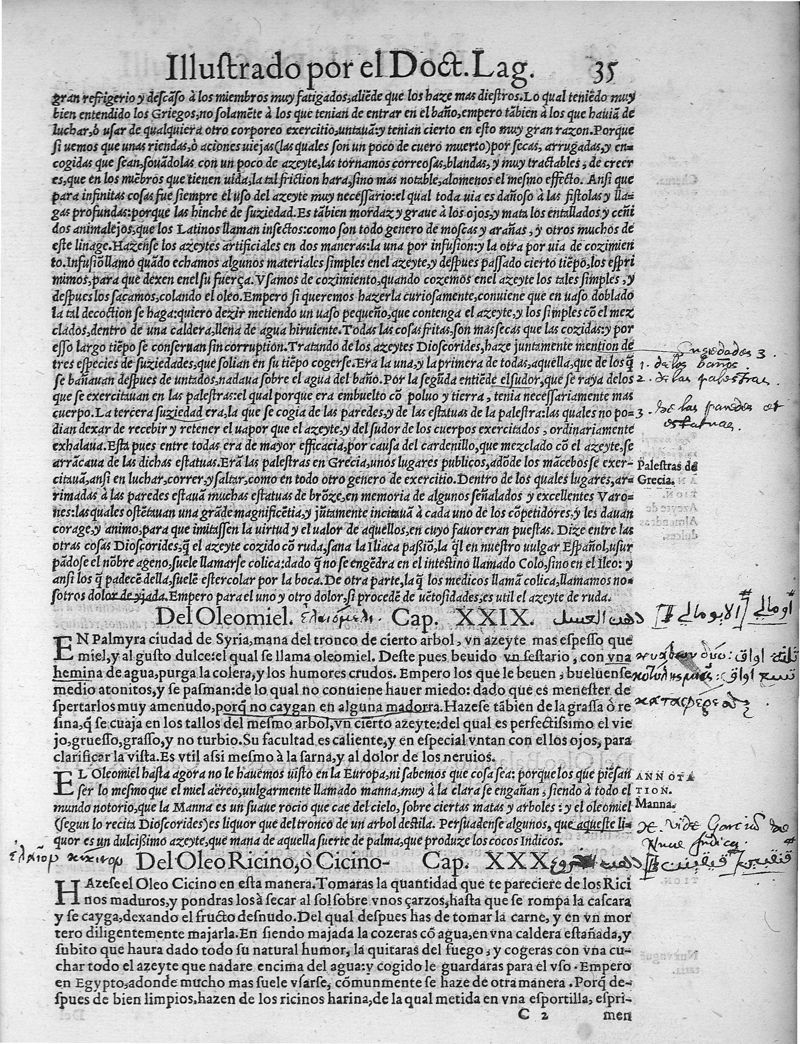 Illustrado por el Doct. Lag. 35
gran refrigerio y descãso à los miembros muy fatigados, aliẽde que los haze mas diestros. Lo qual teniẽdo muy
bien entendido los Griegos, no solamẽte à los que tenian de entrar en el baño, empero tãbien à los que hauiã de
luchar, ò usar de qualquiera otro corporeo exercitio, untauã: y tenian cierto en esto muy gran razon. Porque
si uemos que unas riendas, ò aciones uiejas (las quales son un poco de cuero muerto) por secas, arrugadas, y en-
cogidas que sean, souãdolas con un poco de azeyte, las tornamos correosas, blandas, y muy tractables, de creer
es, que en los miẽbros que tienen uida, la tal friction hara, sino mas notable, alomenos el mesmo effecto. Ansi que
para infinitas cosas fue siempre el uso del azeyte muy necessario: el qual toda uia es dañoso à las fistolas y lla-
gas profundas: porque las hinche de suziedad. Es tãbien mordaz y graue à los ojos, y mata los entallados y ceñi
dos animalejos, que los Latinos llaman insectos: como son todo genero de moscas y arañas, y otros muchos de
este linage. Hazense los azeytes artificiales en dos maneras: la una por infusion: y la otra por uia de cozimien
to. Infusiõ llamo quãdo echamos algunos materiales simples en el azeyte, y despues passado cierto tiẽpo, los espri
mimos, para que dexen en el su fuerça. Vsamos de cozimiento, quando cozemos en el azeyte los tales simples, y
despues los sacamos, colando el oleo. Empero si queremos hazerla curiosamente, conuiene que en uaso doblado
la tal decoction se haga: quiero dezir metiendo un uaso pequeño, que contenga el azeyte, y los simples cõ el mez
clados, dentro de una caldera, llena de agua hiruiente. Todas las cosas fritas, son mas secas que las cozidas: y por
esso largo tiẽpo se conseruan sin corruption. Tratando de los azeytes Dioscorides, haze juntamente mention de
tres especies de suziedades, que solian en su tiẽpo cogerse. Era la una, y la primera de todas, aquella, que de los q̃
se bañauan despues de untados, nadaua sobre el agua del baño. Por la segũda entiẽde el sudor, que se raya de los
que se exercitauan en las palestras: el qual porque era embuelto cõ poluo y tierra, tenia necessariamente mas
cuerpo. La tercera suziedad era, la que se cogia de las paredes, y de las estatuas de la palestra: las quales no po-
dian dexar de recebir y retener el uapor que el azeyte, y del sudor de los cuerpos exercitados, ordinariamente
exhalaua. Esta pues entre todas era de mayor efficacia, por causa del cardenillo, que mezclado cõ el azeyte, se
arrãcaua de las dichas estatuas. Erã las palestras en Grecia, unos lugares publicos, adõde los mãcebos se exer-
citauã, ansi en luchar, correr, y saltar, como en todo otro genero de exercitio. Dentro de los quales lugares, ar-
rimadas à las paredes estauã muchas estatuas de brõze, en memoria de algunos señalados y excellentes Varo-
nes: las quales ostẽtauan una grãde magnificẽtia, y jũtamente incitauã à cada uno de los cõpetidores, y les dauan
corage, y animo, para que imitassen la uirtud y el ualor de aquellos, en cuyo fauor eran puestas. Dize entre las
otras cosas Dioscorides, q̃ el azeyte cozido cõ ruda, sana la Iliaca passiõ, la q̃l en nuestro uulgar Español, usur
pãdose el nõbre ageno, suele llamarse colica: dado q̃ no se engẽdra en el intestino llamado Colo, sino en el Ileo: y
ansi los q̃ padecẽ della, suelẽ estercolar por la boca. De otra parte, la q̃ los medicos llamã colica, llamamos no-
sotros dolor de yjada. Empero para el uno y otro dolor, si procedẽ de uẽtosidades, es util el azeyte de ruda.
suziedades 3.
1. de los baños.
2. de las palestras.
3. de las paredes et
estatuas.
Palestras de
Grecia.
Del Oleomiel. ἐλαιόμελι. Cap. XXIX. دهن العسل
EN Palmyra ciudad de Syria, mana del tronco de cierto arbol, vn azeyte mas espesso que
miel, y al gusto dulce: el qual se llama oleomiel. Deste pues beuido vn sestario, con vna
hemina de agua, purga la colera, y los humores crudos. Empero los que le beuen, bueluense
medio atonitos, y se pasman: de lo qual no conuiene hauer miedo: dado que es menester de
spertarlos muy amenudo, porq̃ no caygan en alguna madorra. Hazese tãbien de la grassa ò re
sina, q̃ se cuaja en los tallos del mesmo arbol, vn cierto azeyte: del qual es perfectissimo el vie
jo, gruesso, grasso, y no turbio. Su facultad es caliente, y en especial vntan con el los ojos, para
clarificar la vista. Es vtil assi mesmo à la sarna, y al dolor de los neruios.
EL Oleomiel hasta agora no le hauemos uisto en la Europa, ni sabemos que cosa sea: porque los que piẽsan
ser lo mesmo que el miel aëreo, uulgarmente llamado manna, muy à la clara se engañan, siendo à todo el
mundo notorio, que la Manna es un suaue rocio que cae del cielo, sobre ciertas matas y arboles: y el oleomiel
(segun lo recita Dioscorides) es liquor que del tronco de un arbol destila. Persuadense algunos, que aqueste li-
quor es un dulcissimo azeyte, que mana de aquella suerte de palma, que produce los cocos Indicos.
ANNOTA
TION.
Manna.
Del Oleo Ricino, ò Cicino- Cap. XXX.
HAzese el Oleo Cicino en esta manera. Tomaras la quantidad que te pareciere de los Rici
nos maduros, y pondras los à secar al sol sobre vnos çarzos, hasta que se rompa la cascara
y se cayga, dexando el fructo desnudo. Del qual despues has de tomar la carne, y en vn mor
tero diligentemente majarla. En siendo majada la cozeras cõ agua, en vna caldera estañada, y
subito que haura dado todo su natural humor, la quitaras del fuego, y cogeras con vna cu-
char todo el azeyte que nadare encima del agua: y cogido le guardaras para el vso. Empero
en Egypto, adonde mucho mas suele vsarse, cõmunmente se haze de otra manera. Porq̃ de-
spues de bien limpios, hazen de los ricinos harina, de la qual metida en vna esportilla, espri-
C 2 men